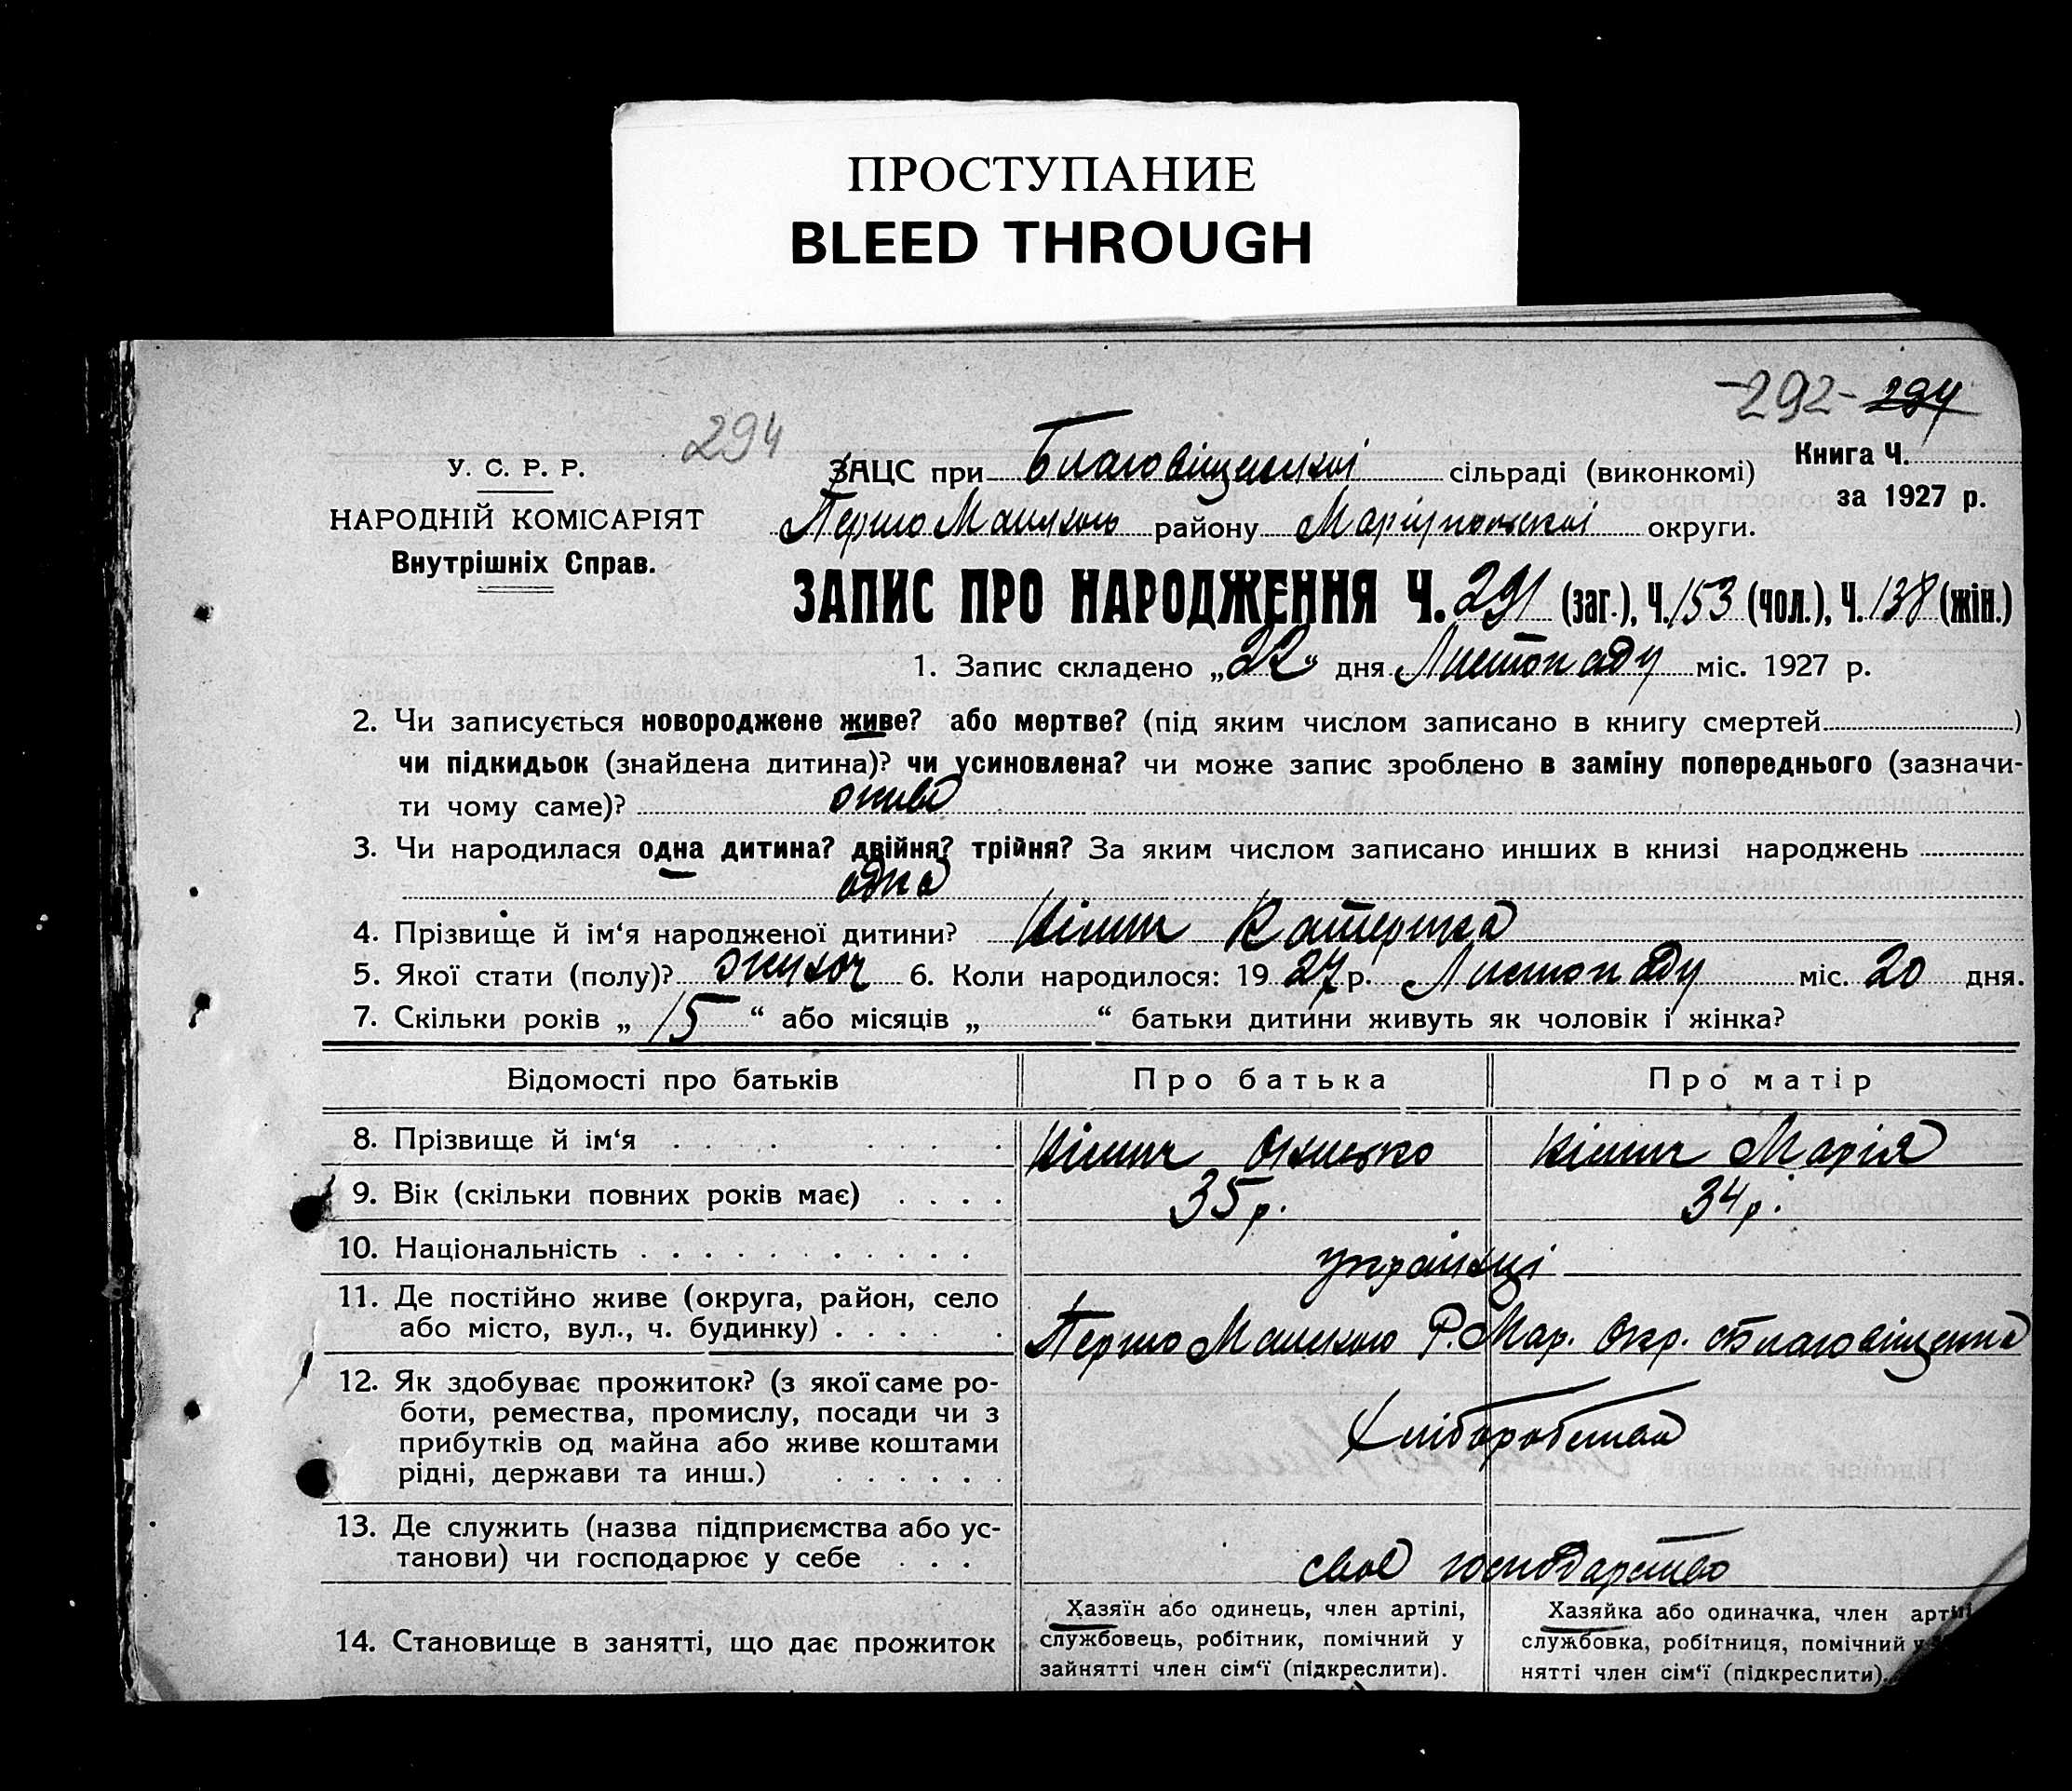 ПРОСТУПАНИЕ
BLEED THROUGH
-292- 294
294
У. С. Р. Р.
НАРОДНІЙ КОМІСАРІЯТ
Внутрішніх Справ.
Книга Ч.
за 1927 р.
ЗАЦС при Благовіщенській сільраді (виконкомі)
Першо Майського району Маріупольської округи.
ЗАПИС ПРО НАРОДЖЕННЯ Ч. 291 (заг.), Ч. 153 (чол.), Ч. 138 (жін.)
1. Запис складено „22" дня Листопаду міс. 1927 р.
2. Чи записується новороджене живе? або мертве? (під яким числом записано в книгу смертей )
чи підкидьок (знайдена дитина)? чи усиновлена? чи може запис зроблено в заміну попереднього (зазначи-
ти чому саме)? живе
3. Чи народилася одна дитина? двійня? трійня? За яким числом записано инших в книзі народжень
одна
4. Прізвище й ім'я народженої дитини? Катерина
5. Якої стати (полу)? жіноч 6. Коли народилося: 1927 р. Листопаду міс. 20 дня.
7. Скільки років „ 15 " або місяців „ " батьки дитини живуть як чоловік і жінка?
Відомості про батьків Про батька Про матір
8. Прізвище й ім'я Марія
9. Вік (скільки повних років має) 35 р. 34 р.
10. Національність українці
11. Де постійно живе (округа, район, село
або місто, вул., ч. будинку) Першо Майського Р. Мар. Окр. с Благовіщенка
12. Як здобуває прожиток? (з якої саме ро-
боти, ремества, промислу, посади чи з
прибутків од майна або живе коштами
рідні, держави та инш.) Хліборобством
13. Де служить (назва підприємства або ус-
танови) чи господарює у себе своє господарство
14. Становище в занятті, що дає прожиток
Хазяїн або одинець, член артілі,
службовець, робітник, помічний у
зайнятті член сім'ї (підкреслити).
Хазяйка або одиначка, член артілі
службовка, робітниця, помічний у
нятті член сім'ї (підкреслити).